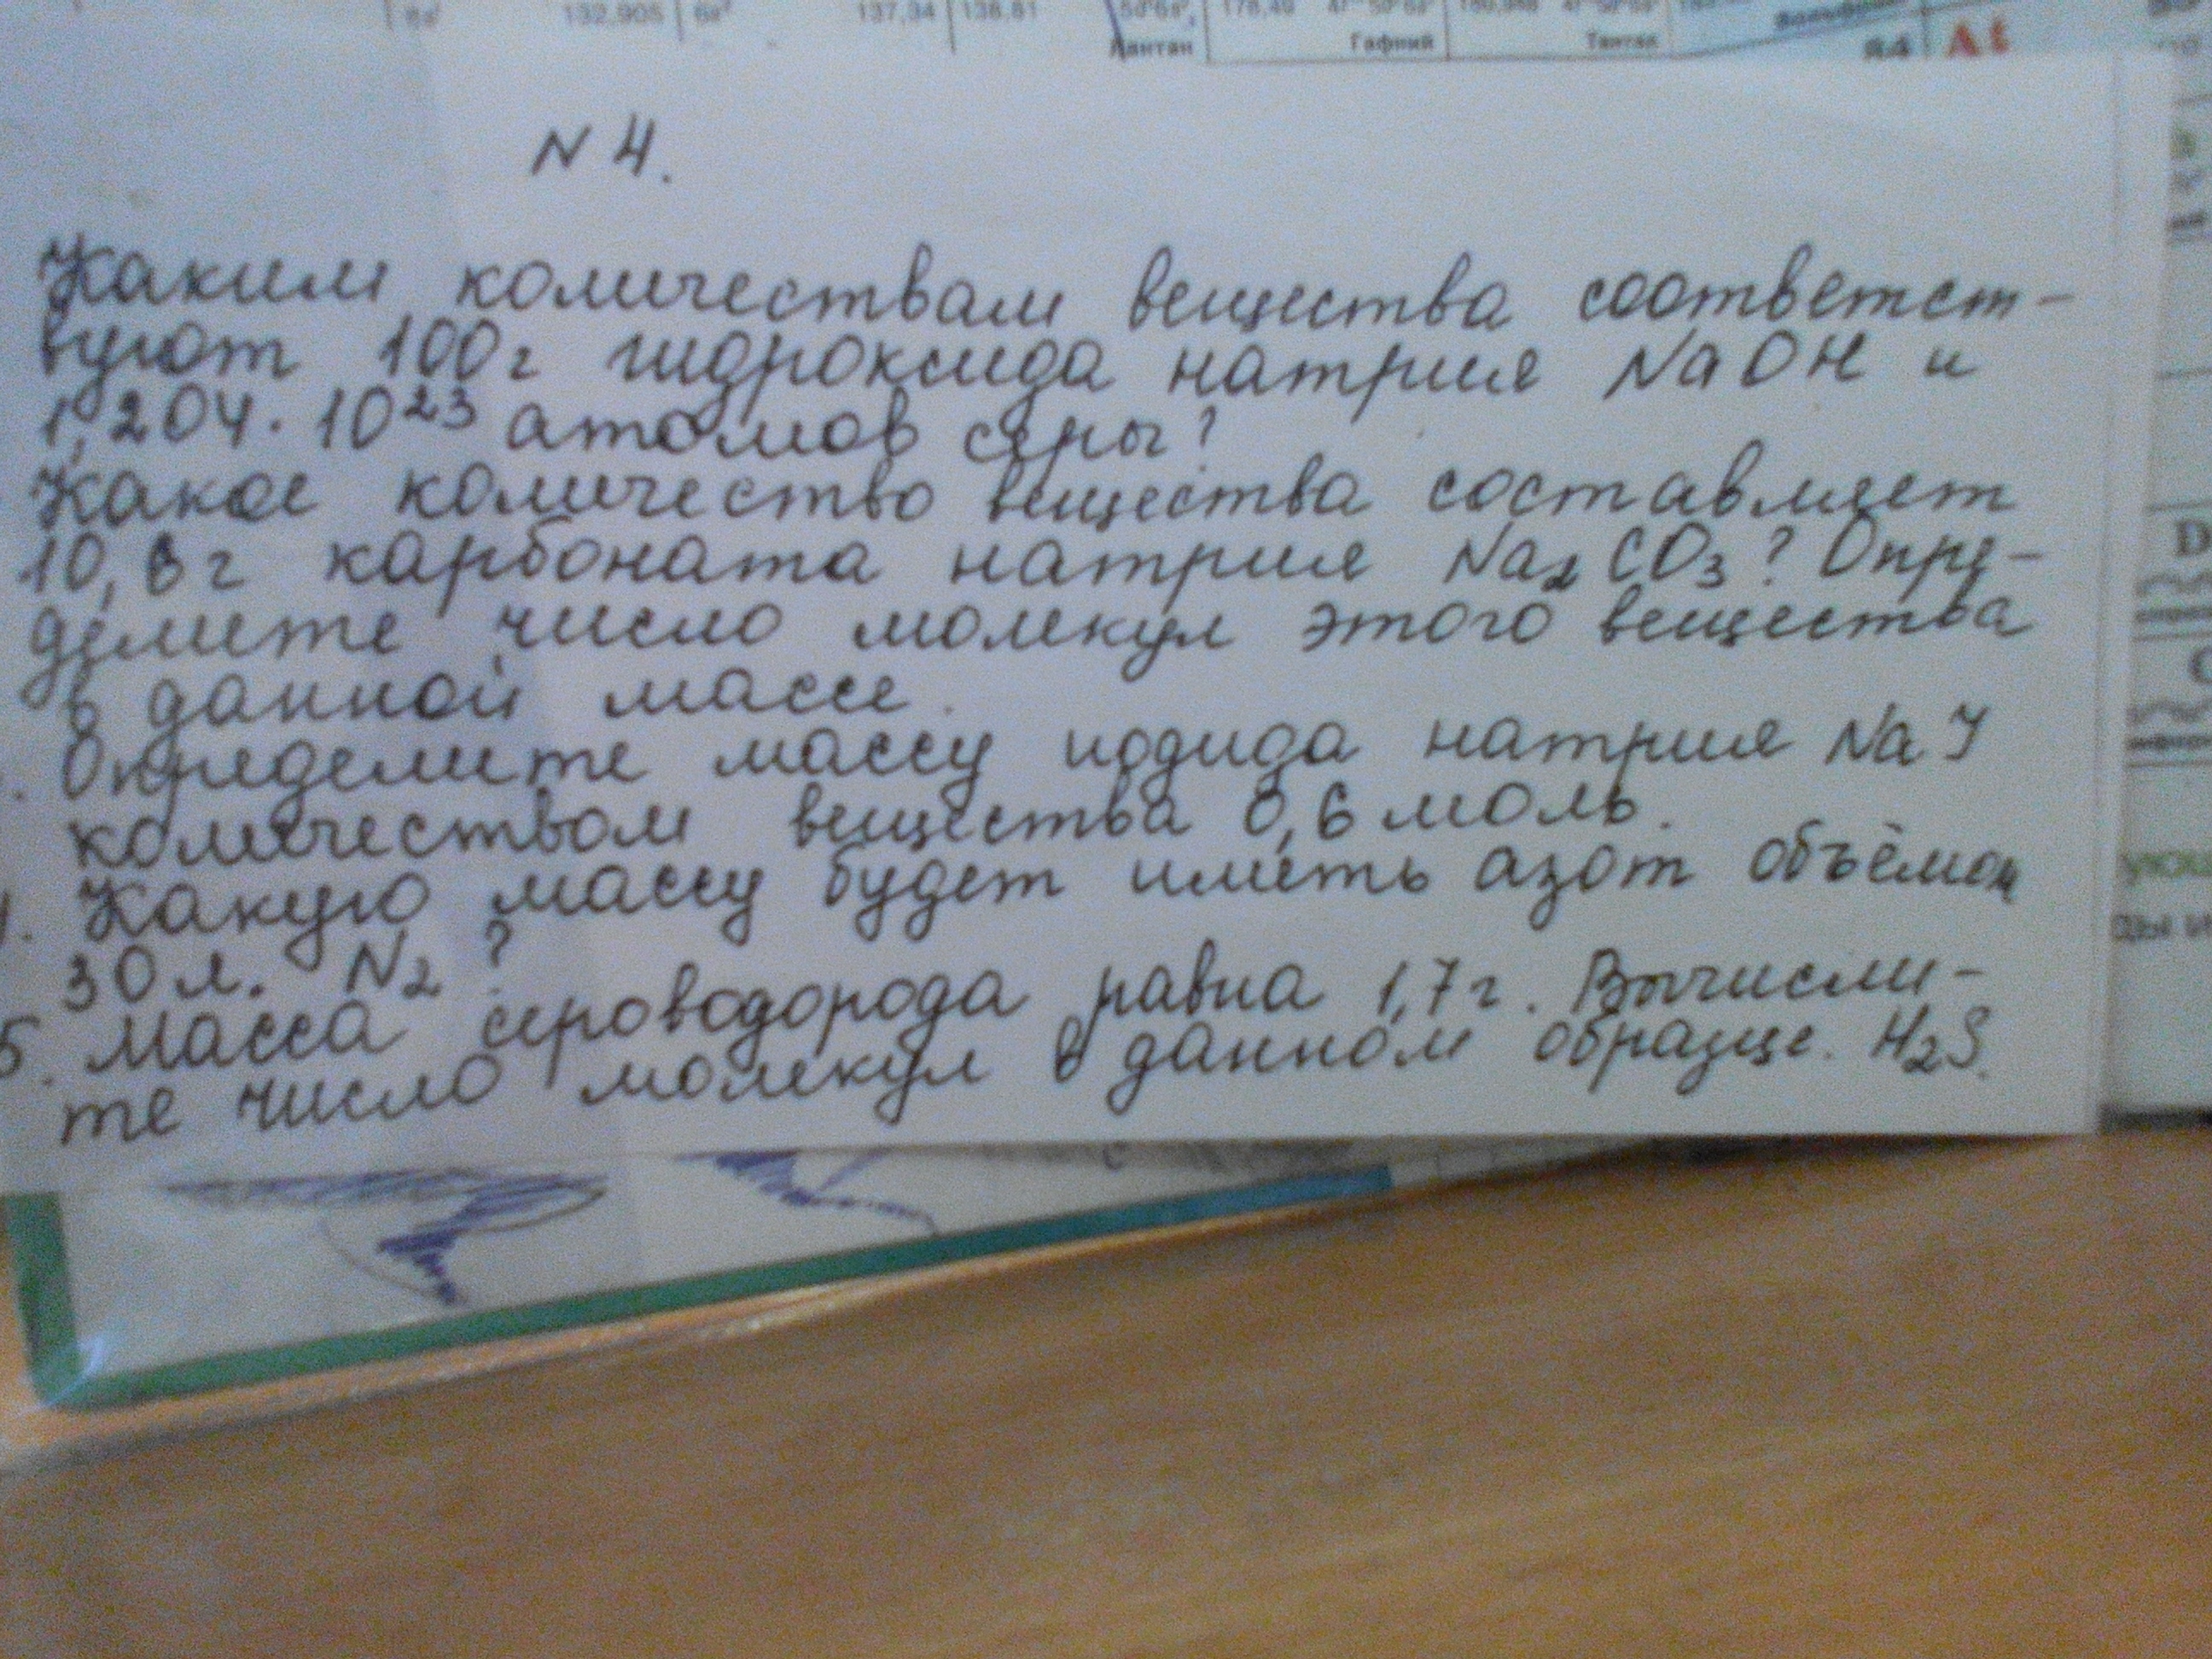 132,905
137,34
138,81
178,49
Лантан
Гафний
Тантал
N 4.
Каким количествам вещества соответст-
вуют 100г гидроксида натрия NaOH и
1,204 · 10²³ атомов серы?
Какое количество вещества составляет
карбоната натрия Na₂CO₃? Опре-
делите число молекул этого вещества
в данной массе.
. Определите массу иодида натрия NaJ
количеством вещества 0,6 моль.
. Какую массу будет иметь азот объёмом
30 л. N₂?
5. Масса сероводорода равна 1,7г. Вычисли-
те число молекул в данном образце. H₂S.